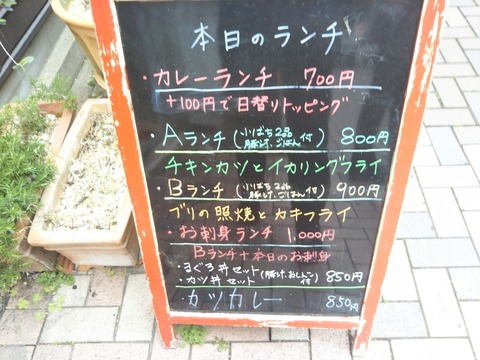 本日のランチ
・カレーランチ 700円
+100円で日替りトッピング
・Aランチ(小ばち2品 豚汁、ごはん付) 800円
チキンカツとイカリングフライ
・Bランチ(小ばち2品 豚汁、ごはん付) 900円
ブリの照焼とカキフライ
・お刺身ランチ 1,000円
Bランチ+本日のお刺身
・まぐろ丼セット(豚汁、おしんこ付) 850円
・カツ丼セット
・カツカレー 850円